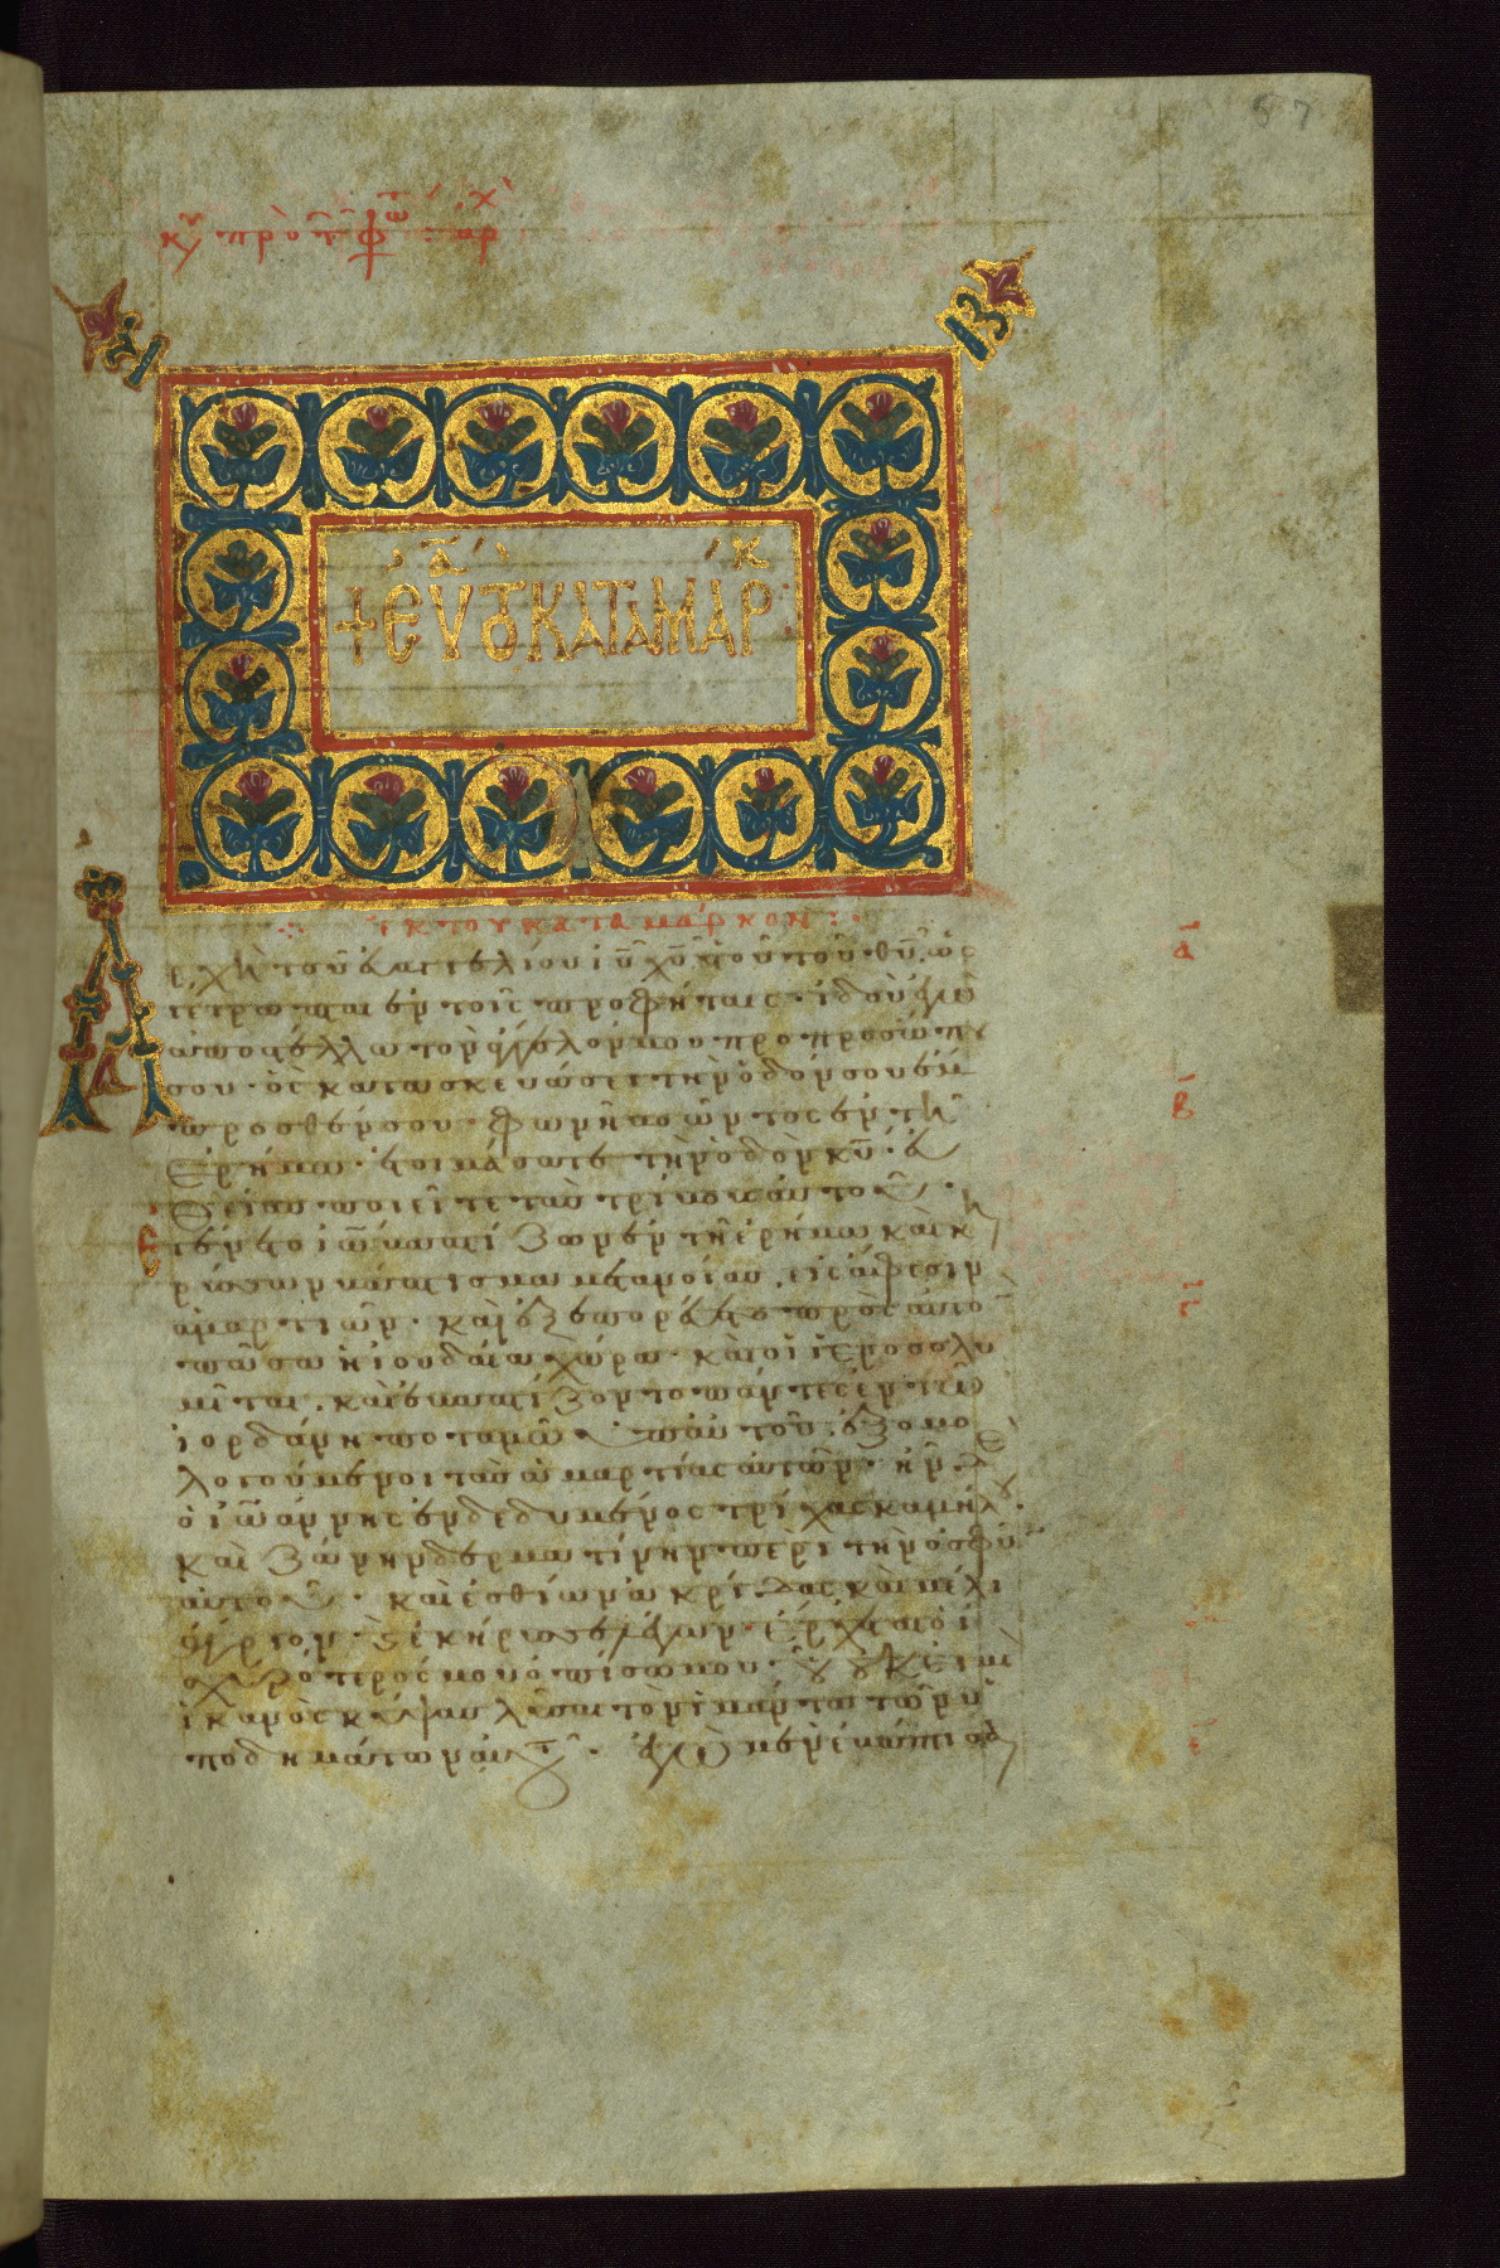 57
+ ΕΥΑΓΓ ΚΑΤΑ ΜΑΡΚ
ἐκ τοῦ κατὰ μάρκον
Ἀρχὴ τοῦ εὐαγγελίου ιυ χυ υἱοῦ τοῦ θυ. ὡς
γέγραπται ἐν τοῖς προφήταις· ἰδοὺ ἐγὼ
ἀποστέλλω τὸν ἄγγελόν μου πρὸ προσώπου
σου· ὃς κατασκευάσει τὴν ὁδόν σου ἔμ
προσθέν σου· φωνὴ βοῶντος ἐν τῇ
ἐρήμω· ἑτοιμάσατε τὴν ὁδὸν κυ· εὐ
θείας ποιεῖτε τὰς τρίβους αὐτοῦ·
Ἐγένετο ἰω βαπτίζων ἐν τῇ ἐρήμω καὶ κη
ρύσσων βάπτισμα μετανοίας εἰς ἄφεσιν
ἁμαρτιῶν· καὶ ἐξεπορεύετο πρὸς αὐτὸν
πᾶσα ἡ ἰουδαία χώρα· καὶ οἱ ἱεροσολυ
μῖται. καὶ ἐβαπτίζοντο πάντες ἐν τῷ
ἰορδάνη ποταμῶ ὑπ' αὐτοῦ. ἐξομο
λογούμενοι τὰς ἁμαρτίας αὐτῶν· ἦν δὲ
ὁ ἰωάννης ἐνδεδυμένος τρίχας καμήλου.
καὶ ζώνην δερματίνην περὶ τὴν ὀσφὺν
αὐτοῦ· καὶ ἐσθίων ἀκρίδας καὶ μέλι
ἄγριον· καὶ ἐκήρυσσε λέγων· ἔρχεται ὁ ἰ
σχυρότερός μου ὀπίσω μου· οὗ οὐκ εἰμὶ
ἱκανὸς κύψας λῦσαι τὸν ἱμάντα τῶν ὑ
ποδημάτων αὐτοῦ· ἐγὼ μὲν ἐβάπτισα
α
β
γ